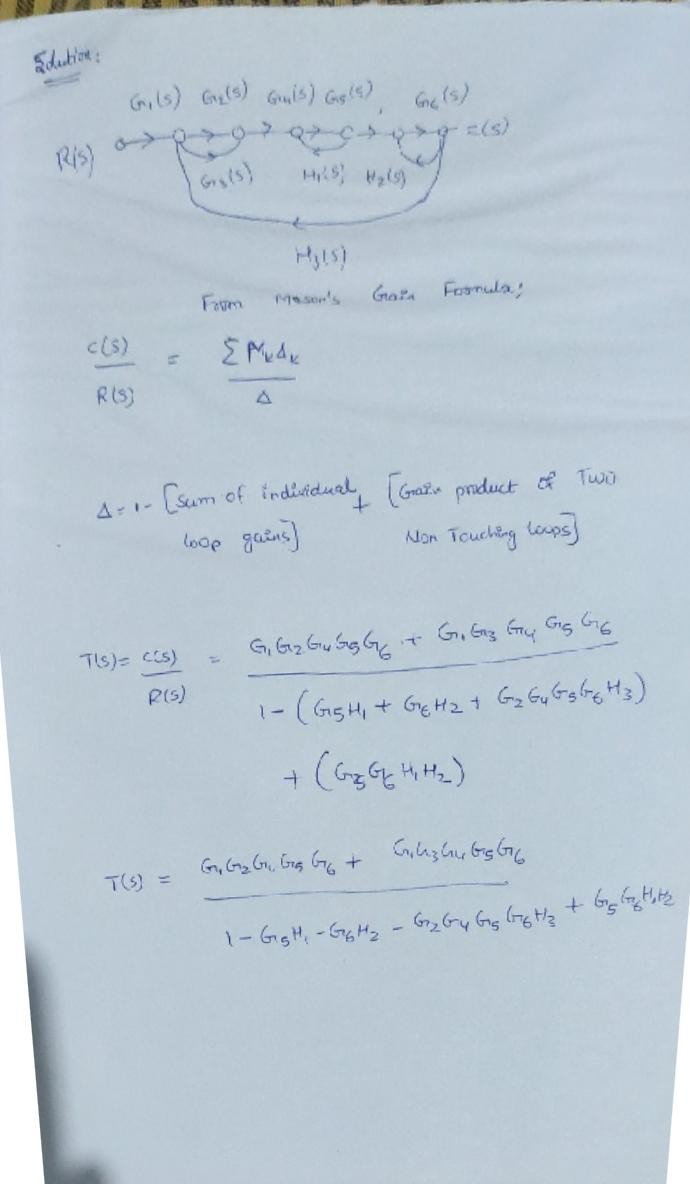 Solution:
G₁(s) G₂(s) G₄(s) G₅(s) G₆(s)
R(s) C(s)
G₃(s) H₁(s) H₂(s)
H₃(s)
From Mason's Gain Formula;
C(s) / R(s) = Σ MₖΔₖ / Δ
Δ = 1 - [Sum of individual + [Gain product of Two
loop gains] Non Touching loops]
T(s) = C(s) / R(s) = G₁G₂G₄G₅G₆ + G₁G₃G₄G₅G₆
1 - (G₅H₁ + G₆H₂ + G₂G₄G₅G₆H₃)
+ (G₅G₆H₁H₂)
T(s) = G₁G₂G₄G₅G₆ + G₁G₃G₄G₅G₆
1 - G₅H₁ - G₆H₂ - G₂G₄G₅G₆H₃ + G₅G₆H₁H₂